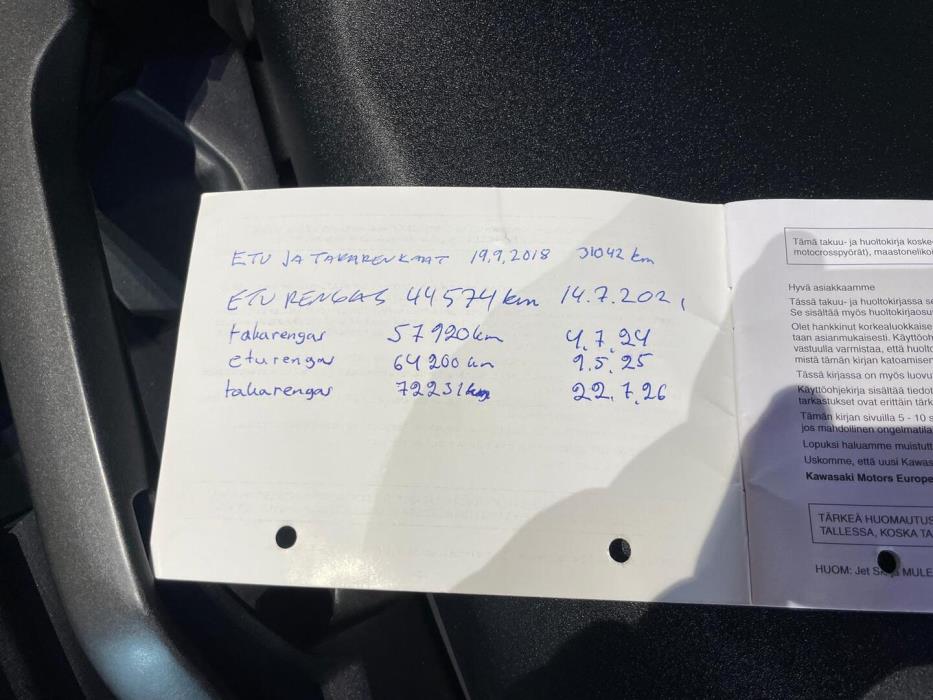 ETU JA TAKARENKAAT 19.9.2018 31042 km
ETURENGAS 44574km 14.7.202,
takarengas 57920km 4.7.24
eturengas 64200 km 9.5.25
takarengas 72231km 22.7.26
Tämä takuu- ja huoltokirja koske
motocrosspyörät), maastonelikoi
Hyvä asiakkaamme
Tässä takuu- ja huoltokirjassa se
Se sisältää myös huoltokirjaosu
Olet hankkinut korkealuokkaise
taan asianmukaisesti. Käyttöoh
vastuulla varmistaa, että huolto
mistä tämän kirjan katoamisen
Tässä kirjassa on myös luovu
Käyttöohjekirja sisältää tiedot
tarkastukset ovat erittäin tärk
Tämän kirjan sivuilla 5 - 10 s
jos mahdollinen ongelmatila
Lopuksi haluamme muistutt
Uskomme, että uusi Kawas
Kawasaki Motors Europe
TÄRKEÄ HUOMAUTUS
TALLESSA, KOSKA TA
HUOM: Jet MULE